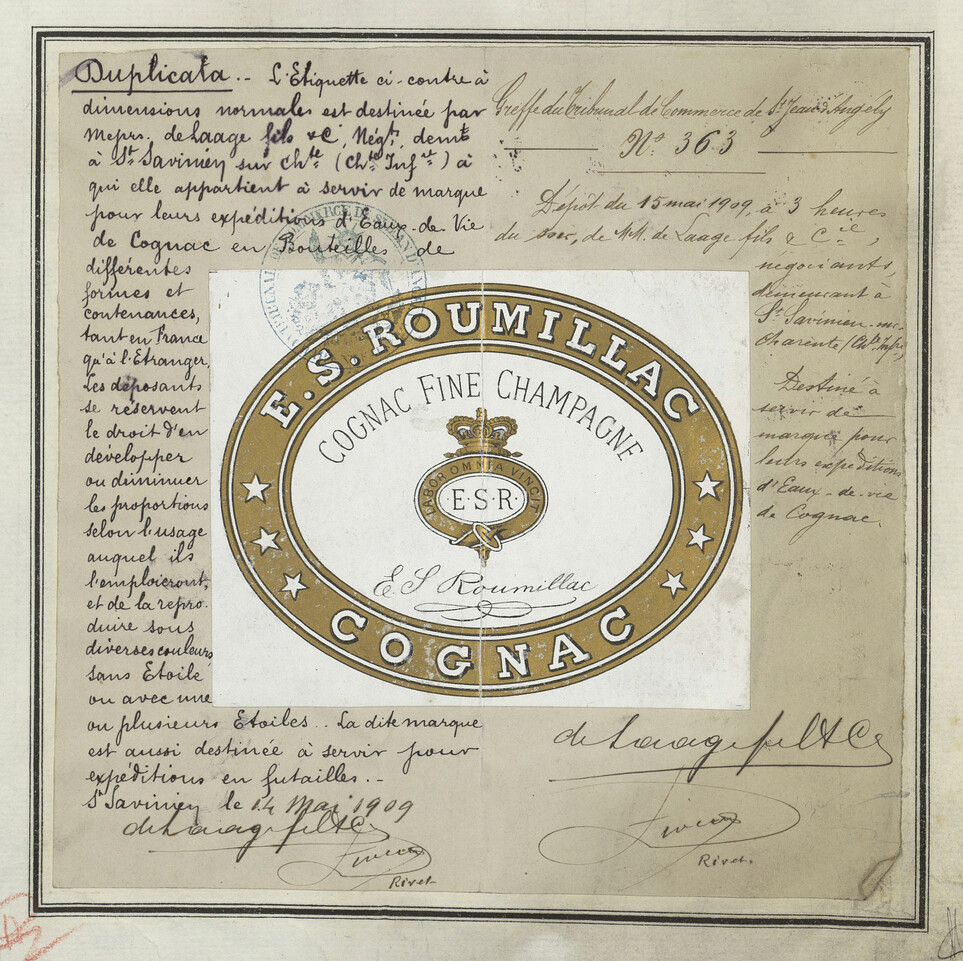 Duplicata.- L'Etiquette ci-contre à
dimensions normales est destinée par
de Laage fils & Cie, Négts, demt
à St Savinien sur Chte (Chte Infre) à
qui elle appartient à servir de marque
pour leurs expéditions d'Eaux-de-Vie
de Cognac en Bouteilles de
différentes
formes et
contenances,
tant en France
qu'à l'Etranger.
Les déposants
se réservent
le droit d'en
développer
ou diminuer
les proportions
selon l'usage
auquel ils
l'emploieront,
et de la repro-
duire sous
diverses couleurs
sans Etoile
ou avec une
ou plusieurs Etoiles.. La dite marque
est aussi destinée à servir pour
expéditions en futailles.-
St Savinien le 14 Mai 1909
de Laage fils & Cie
Rivet
Greffe du Tribunal de Commerce de St Jean d'Angély
No 363
Dépôt du 15 mai 1909, à 3 heures
du soir, de M.M. de Laage fils & Cie,
négociants,
demeurant à
St Savinien-sur-
Charente (Chte Infre)
Destiné à
servir de
marque pour
leurs expéditions
d'Eaux-de-vie
de Cognac.
E.S. ROUMILLAC
COGNAC FINE CHAMPAGNE
LABOR OMNIA VINCIT
E·S·R·
E S Roumillac
COGNAC
de Laage fils & Cie
Rivet.